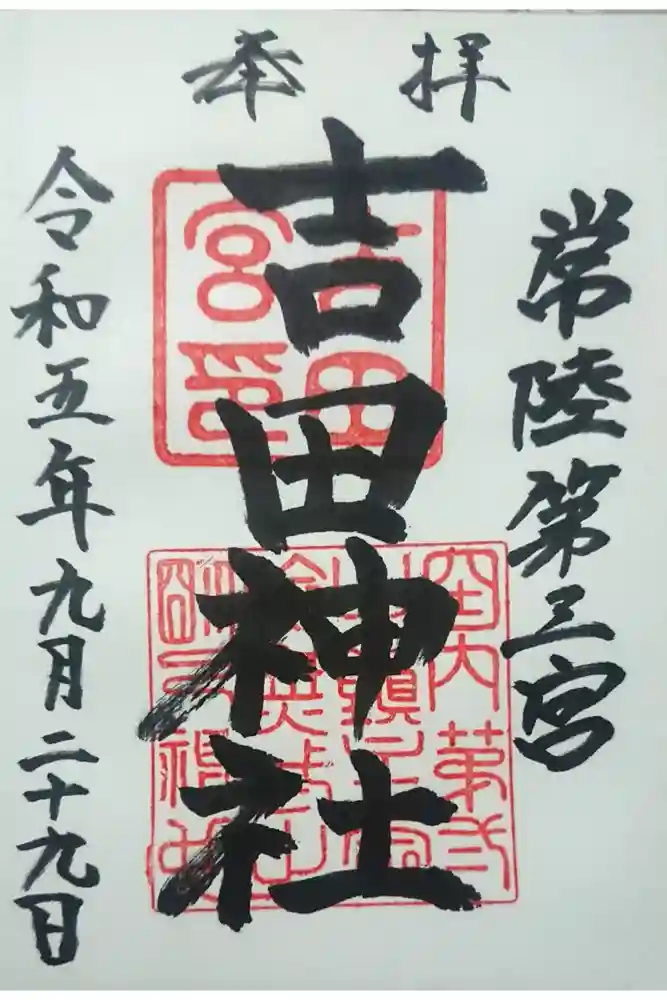 奉拝
常陸第三宮
吉田神社
令和五年九月二十九日
吉田
宮印